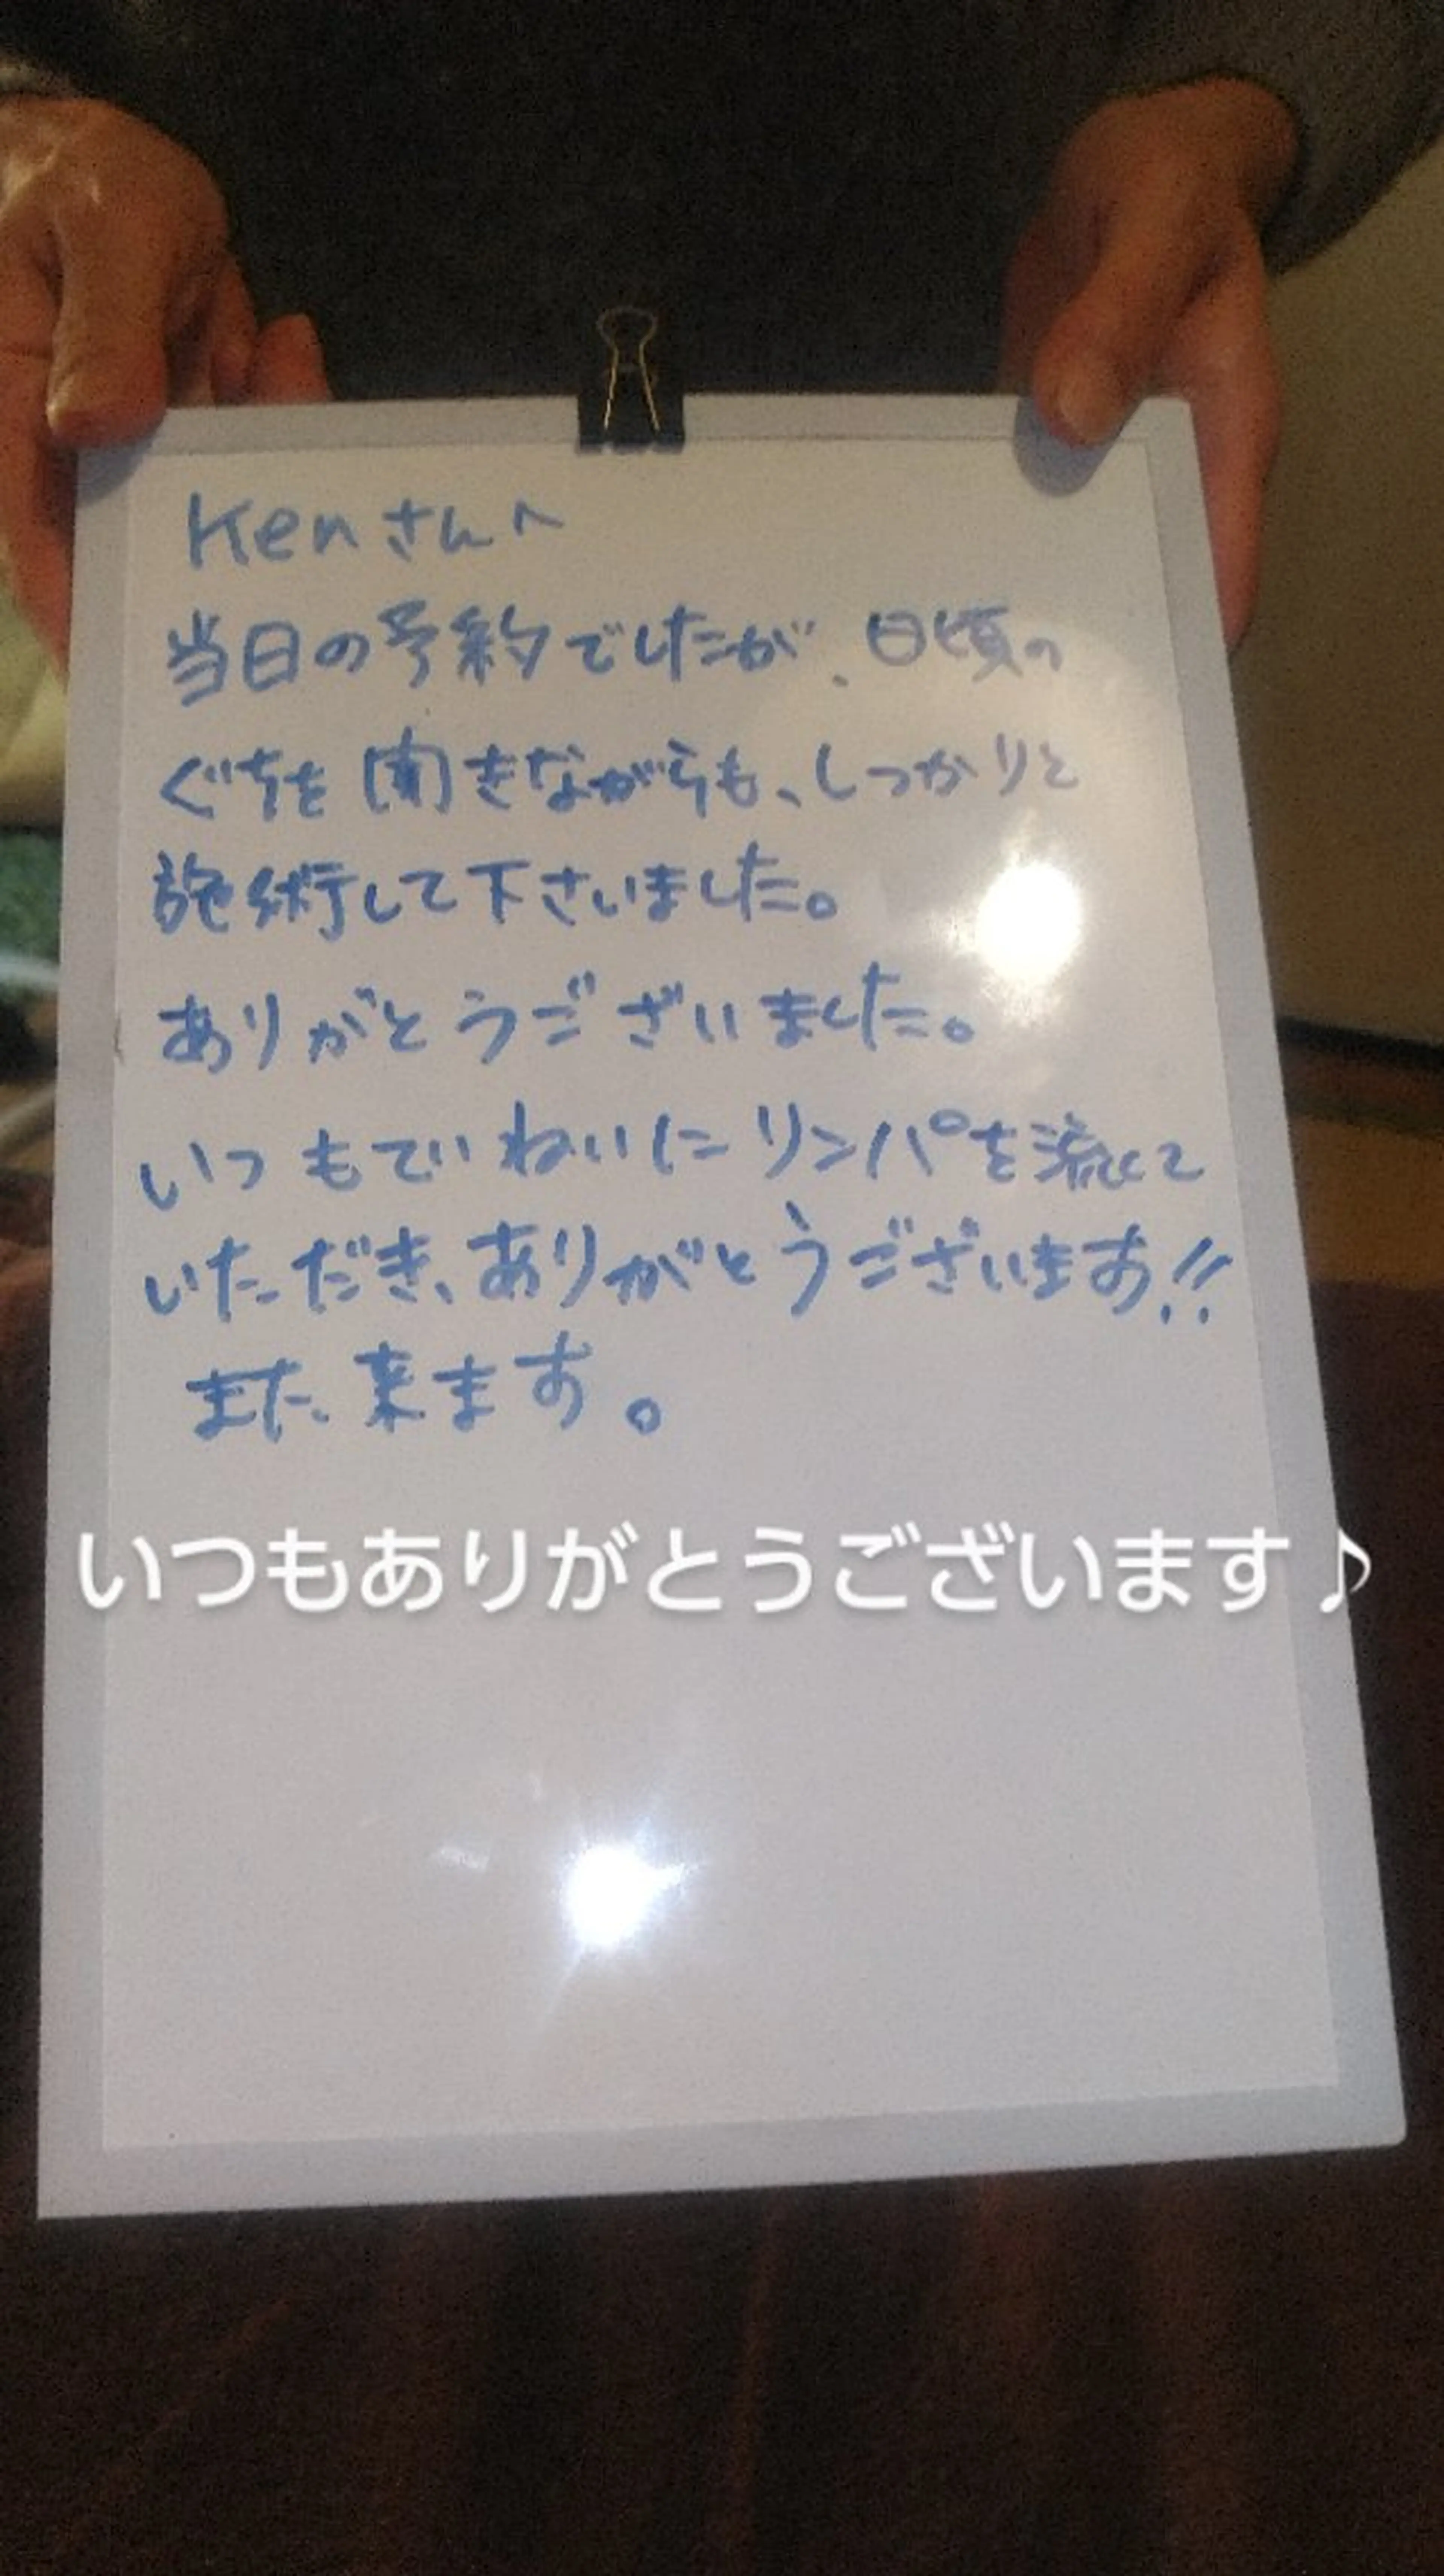 Kenさんへ
当日の予約でしたが、日頃の
ぐちを聞きながらも、しっかりと
施術して下さいました。
ありがとうございました。
いつもていねいにリンパを流して
いただき、ありがとうございます!!
また、来ます。
いつもありがとうございます♪